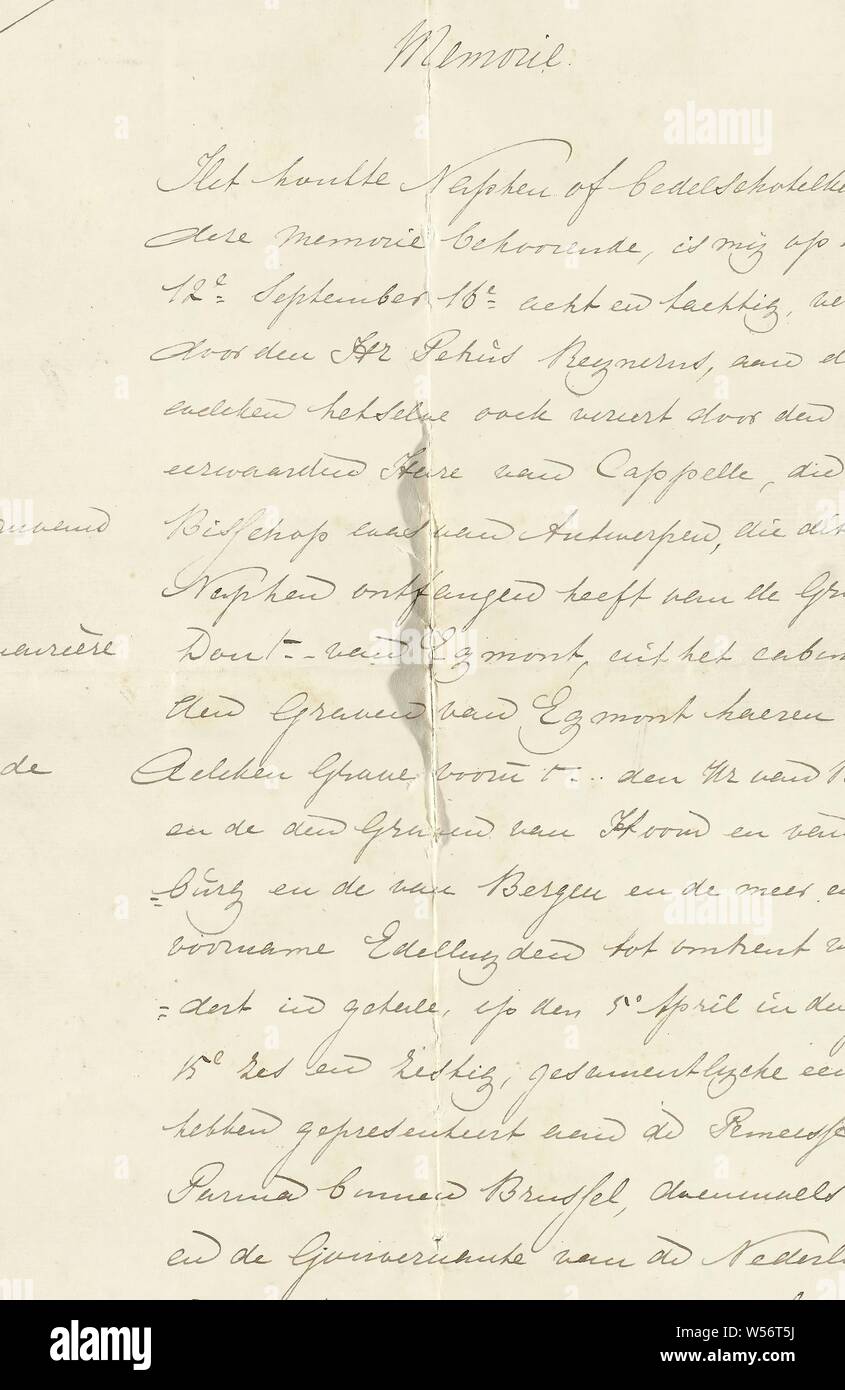 Memorie.
Het houtte Naphen of Bedelschotelke
dese memorie behoorende, is mij op
12e= September 16e= acht en tachtig, ve
door den Hr Petrus Reynerus, aan d
welcken hetselve oock vereert door den
eerwaarden Heere van Cappelle, die
Bisschop was van Antwerpen, die dit
Naphen ontfangen heeft van de Gra
van Egmont, uit het cabin
den Graven van Egmont haeren
Welcken Grave, voorn t-.. den Hr van B
en de den Graven van Hoorn en van
=burg en de van Bergen en de meer a
voorname Edelluyden tot omtrent v
=dert in getale, op den 5e April in den
15e zes en zestig, gesamentlycke een
hebben gepresenteert aan de Princesse
Parma binnen Brussel, doenmaels
en de Gouvernante van de Nederla
de
a
alamy
alamy
Image ID: W56T5J
www.alamy.com